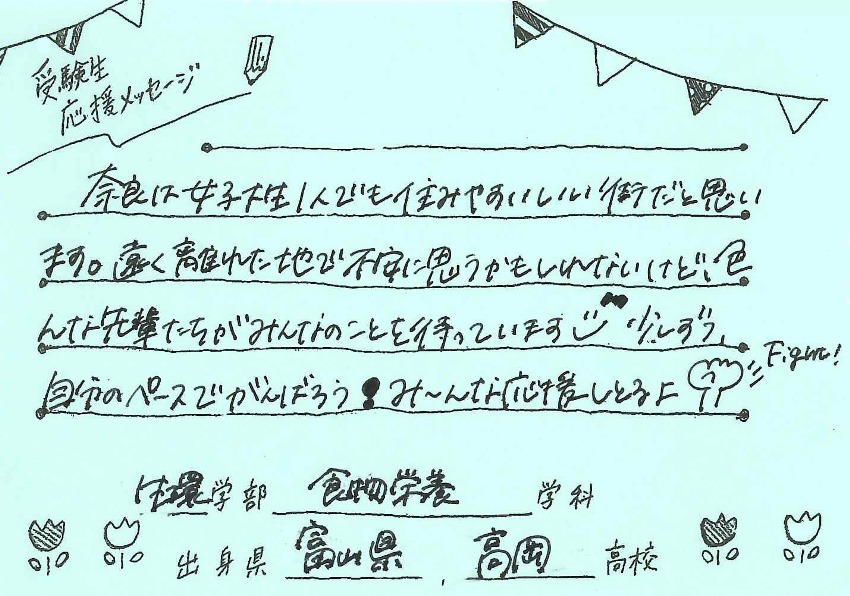 受験生
応援メッセージ
奈良は女子大生1人でも住みやすいしいい街だと思い
ます。遠く離れた地で不安に思うかもしれないけど、色
んな先輩たちがみんなのことを待っています 少しずつ、
自分のペースでがんばろう! み〜んな応援しとるよ
Fight!
生環学部 食物栄養 学科
出身県 富山県 , 高岡 高校